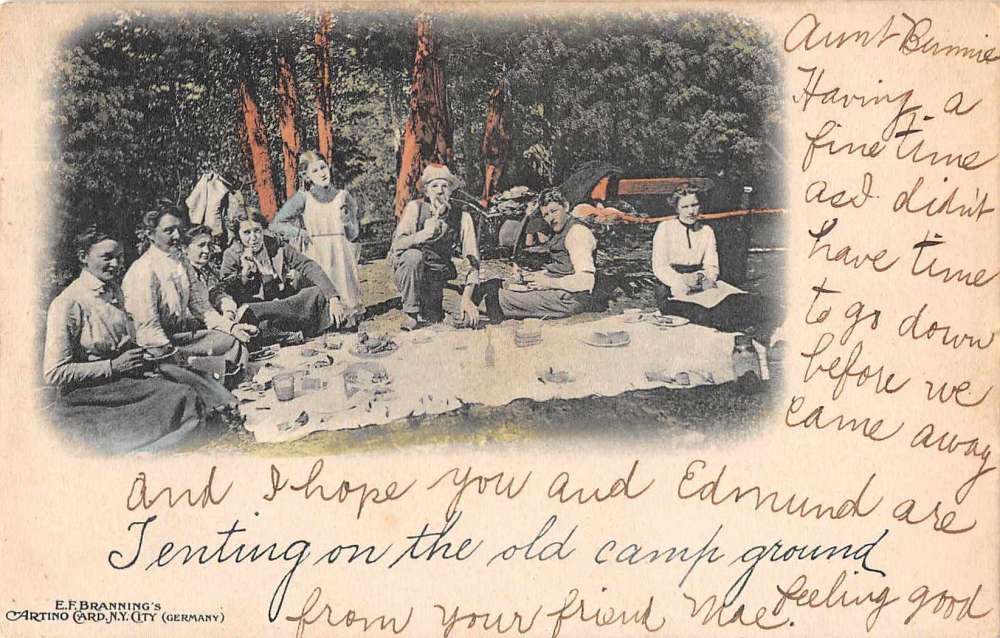 Aunt Bunnie
Having a
fine time
as I didn't
have time
to go down
before we
came away
And I hope you and Edmund are
feeling good
from your friend Mae.
Tenting on the old camp ground
E.F. BRANNING'S
ARTINO CARD, N.Y. CITY (GERMANY)